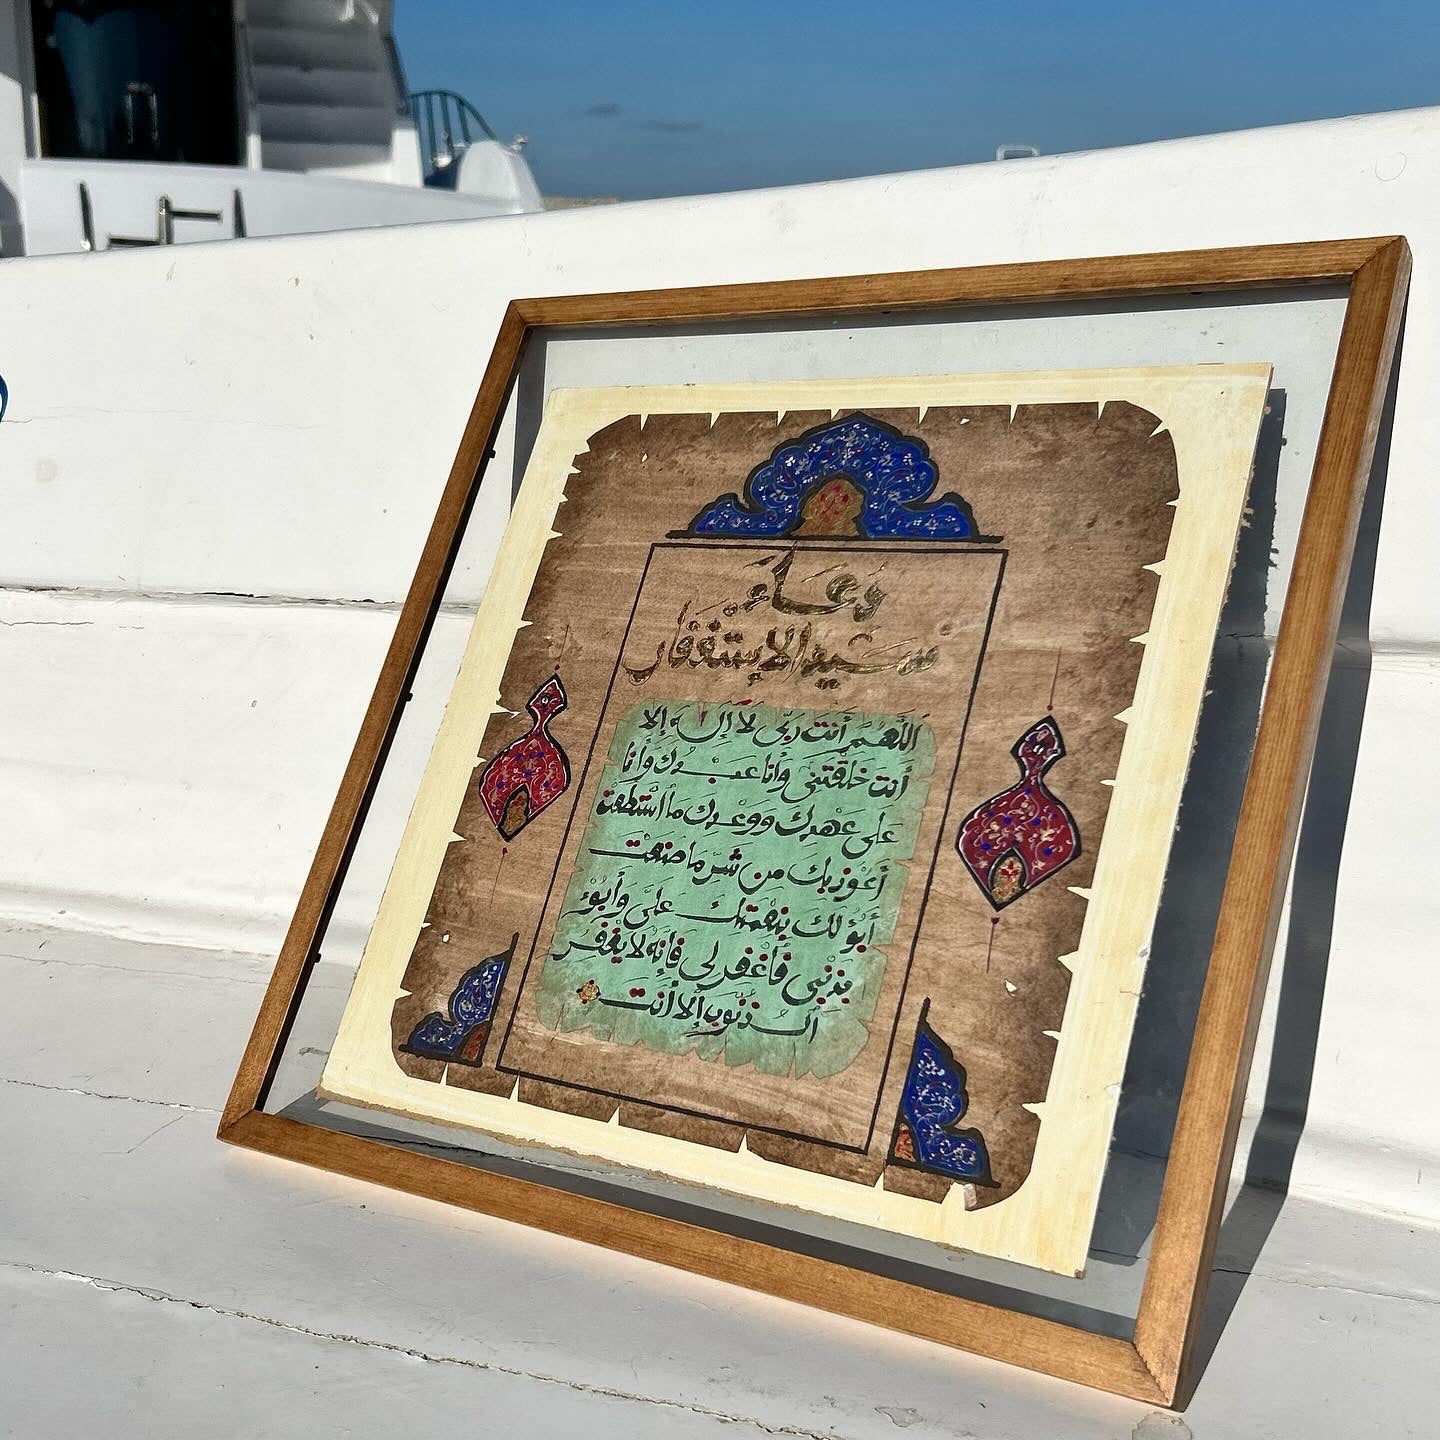 دُعَاءُ
سَيِّد الإِسْتِغْفَار
اَللّٰهُمَّ أَنْتَ رَبِّى لَا إِلٰهَ إِلَّا
أَنْتَ خَلَقْتَنِى وَأَنَا عَبْدُكَ وَأَنَا
عَلَى عَهْدِكَ وَوَعْدِكَ مَا اسْتَطَعْتُ
أَعُوْذُ بِكَ مِنْ شَرِّ مَا صَنَعْتُ
أَبُوْءُ لَكَ بِنِعْمَتِكَ عَلَىَّ وَأَبُوْءُ
بِذَنْبِى فَاغْفِرْلِى فَإِنَّهُ لَا يَغْفِرُ
الذُّنُوْبَ إِلَّا أَنْتَ